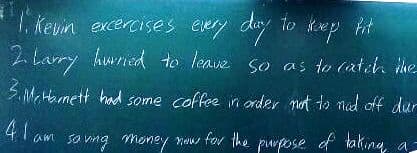 1. Kevin excercises every day to keep fit
2. Larry hurried to leave so as to catch the
3. Mr. Harnett had some coffee in order not to nod off dur
4. I am saving money now for the purpose of taking a